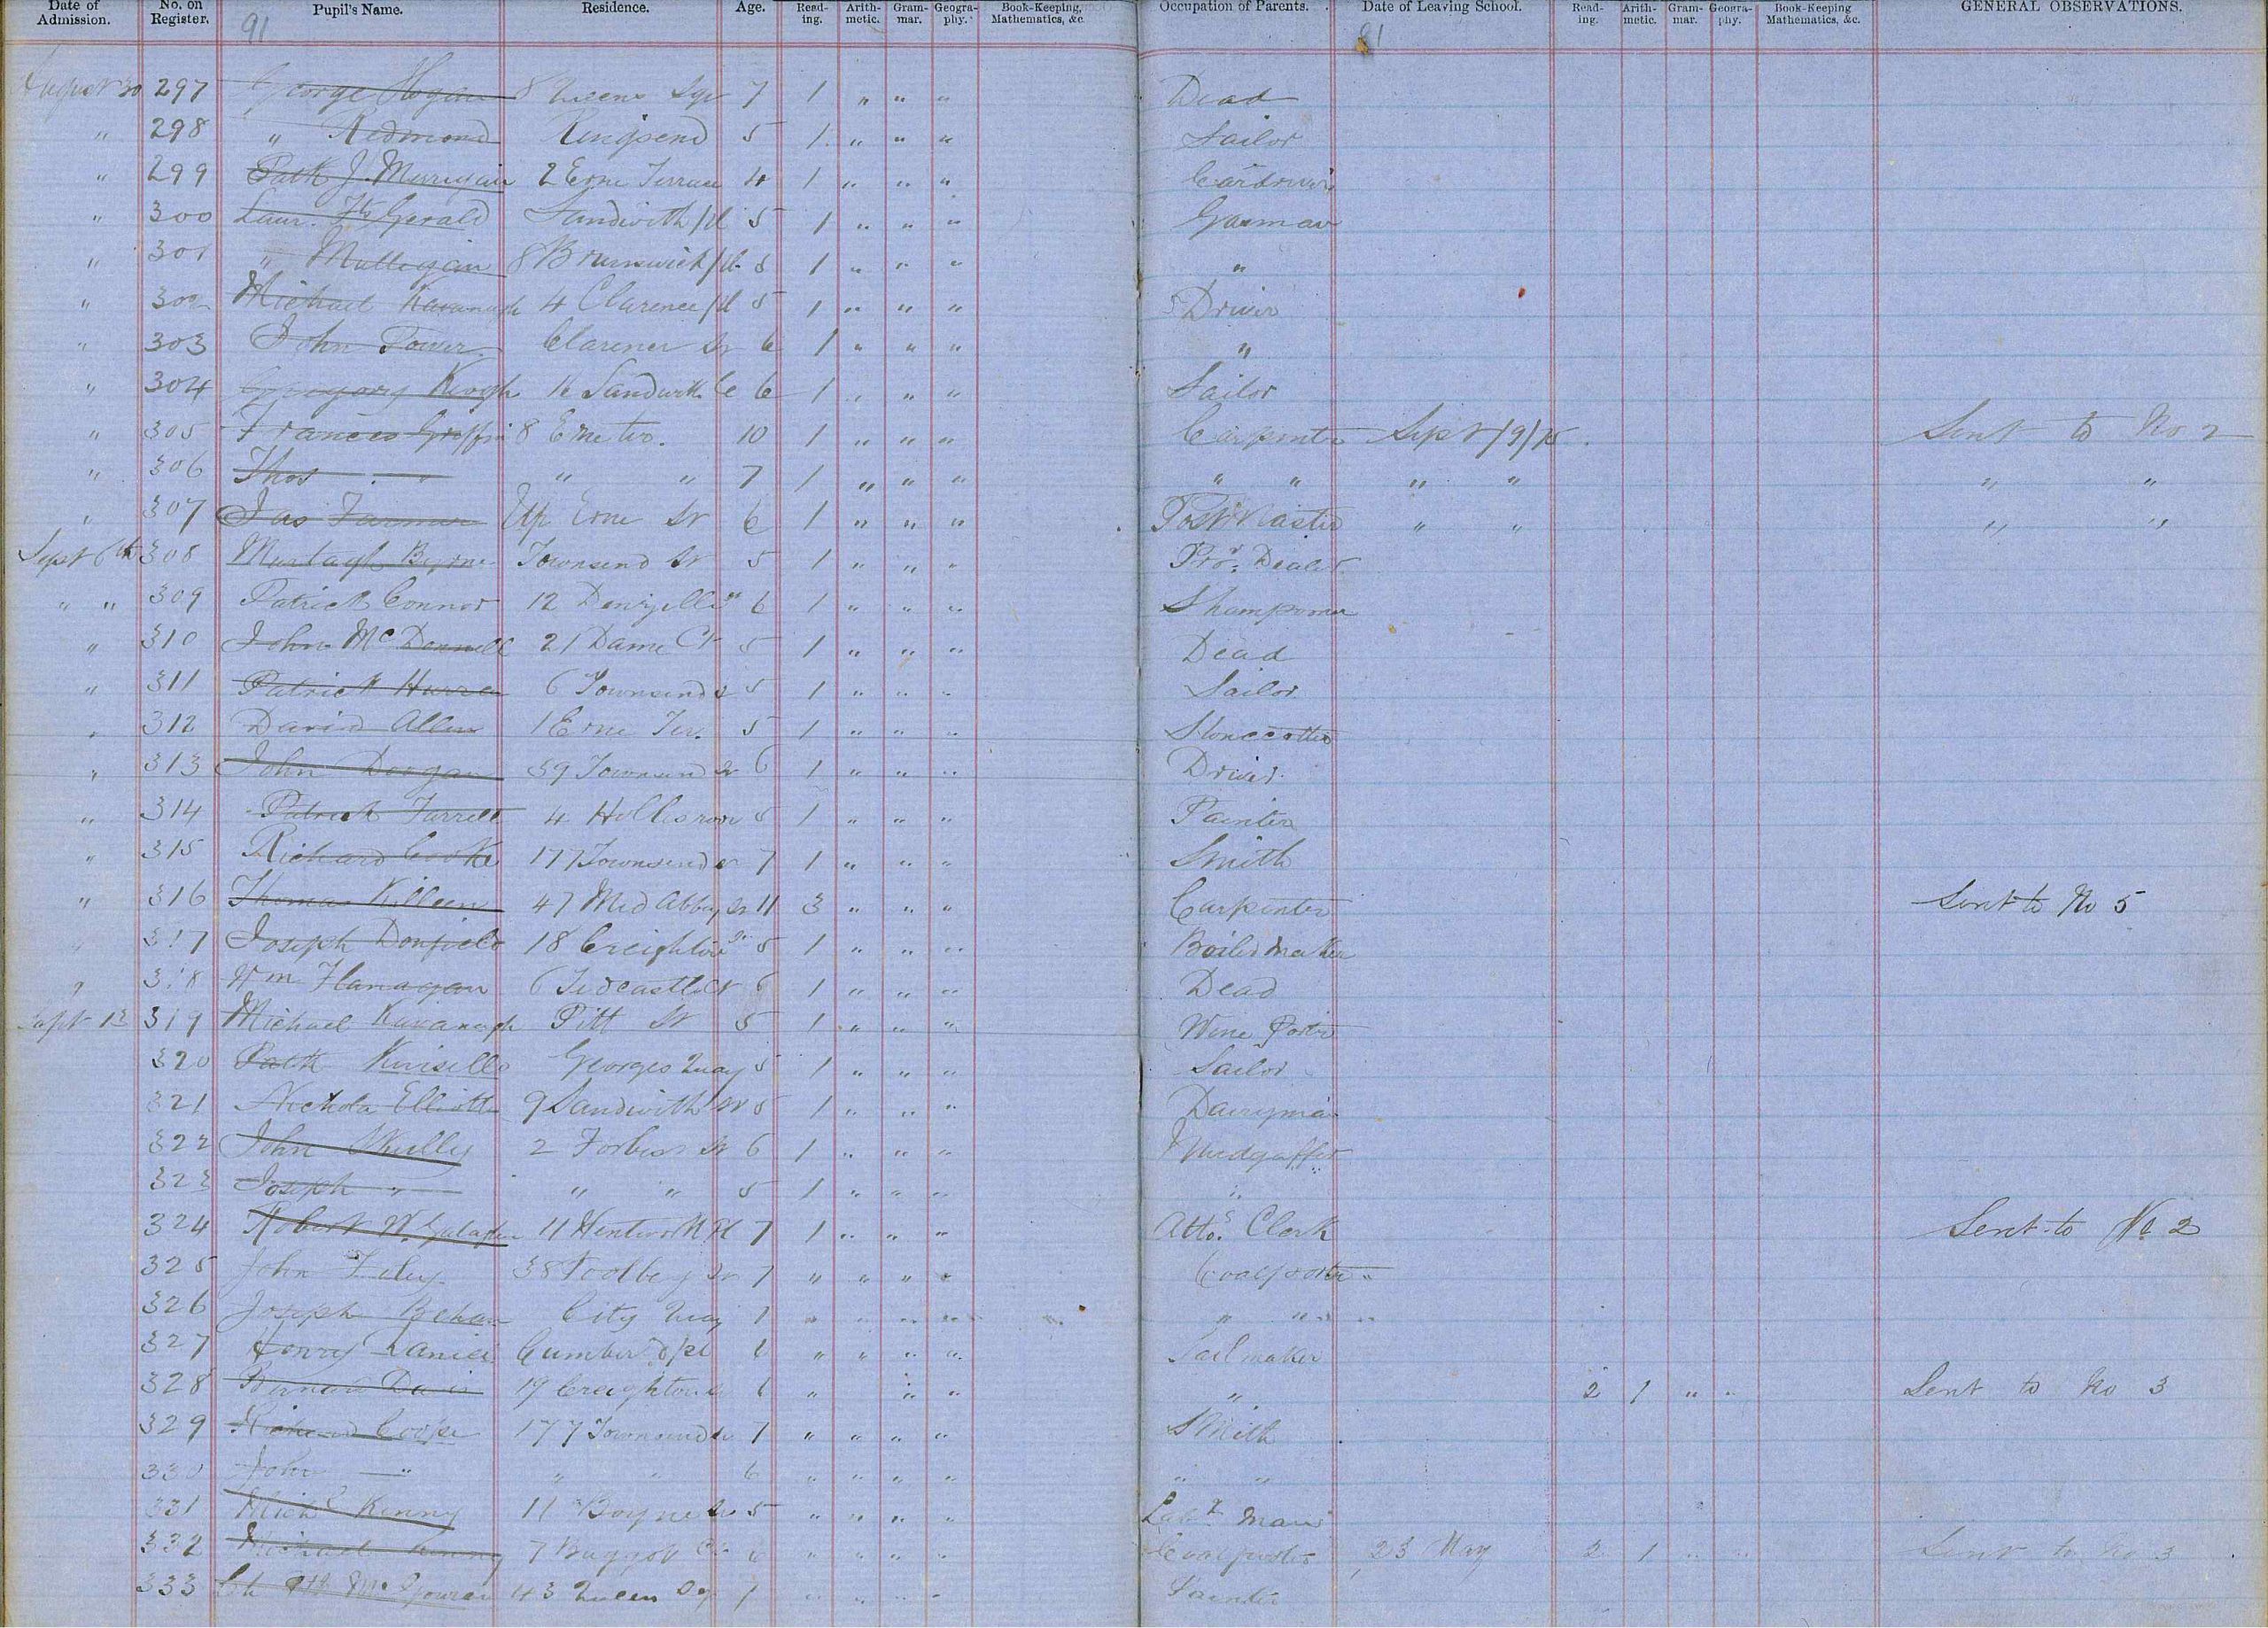 Date of Admission. No. on Register. Pupil's Name. Residence. Age. Read-ing. Arith-metic. Gram-mar. Geogra-phy. Book-Keeping, Mathematics, &c. Occupation of Parents. Date of Leaving School. Read-ing. Arith-metic. Gram-mar. Geogra-phy. Book-Keeping Mathematics, &c. GENERAL OBSERVATIONS.
91 91
August 30 297 George Hogan 8 Queens Sqr 7 1 " " " Dead
" 298 " Redmond Ringsend 5 1 " " " Sailor
" 299 Patk J. Merrigan 2 Erne Terrace 4 1 " " " Cardriver
" 300 Laur. FitzGerald Sandwith /pl 5 1 " " " Gasman
" 301 " Mulligan 8 Brunswick /pl 5 1 " " " "
" 302 Michael Kavanagh 4 Clarence /pl 5 1 " " " Driver
" 303 John Power Clarence St 6 1 " " " "
" 304 Gregory Keogh 16 Sandwith 6 1 " " " Sailor
" 305 Frances Griffin 8 Erne ter. 10 1 " " " Carpenter Sept /9/75 Sent to No 2
" 306 Thos " " " 7 1 " " " " " " " " "
" 307 Jas Farmer Up Erne St 6 1 " " " Post Master " " " "
Sept 6th 308 Murtagh Byrne Townsend St 5 1 " " " Pror. Dealer
" " 309 Patrick Connor 12 Denzille St 6 1 " " " Shampooner
" 310 John McDonnell 21 Dame Ct 5 1 " " " Dead
" 311 Patrick 6 Townsend St 5 1 " " " Sailor
" 312 David Allen 1 Erne Ter. 5 1 " " " Stonecutter
" 313 John Doogan 59 Townsend St 6 1 " " " Driver
" 314 Patrick Farrell 4 Hollis row 5 1 " " " Painter
" 315 Richard Cooke 177 Townsend St 7 1 " " " Smith
" 316 Thomas Killeen 47 Mid Abbey St 11 3 " " " Carpenter Sent to No 5
" 317 Joseph Donfield 18 Creighton St 5 1 " " " Boiler Maker
" 318 Wm Flanagan 6 Tedcastle Ct 6 1 " " " Dead
Sept 13 319 Michael Kavanagh Pitt St 5 1 " " " Wine Porter
320 Patk Kinsella Georges Quay 5 1 " " " Sailor
321 Nichola Elliott 9 Sandwith St 5 1 " " " Dairyman
322 John Skully 2 Forbes St 6 1 " " "
323 Joseph " " " 5 1 " " " "
324 Robert W. 11 Wentworth Pl 7 1 " " " Atto.s Clerk Sent to No 2
325 John Foley 38 St 7 " " " " Coalporter "
326 Joseph Behan City Quay 7 " " " " " "
327 Henry Cumberd /pl 6 " " " " Sailmaker
328 Bernard Davis 19 Creighton St 6 " " " " 2 1 " " Sent to No 3
329 Richard Cooke 177 Townsend St 7 " " " " Smith
330 John " " " 6 " " " " " "
331 Michl Kenny 11 Boyne St 5 " " " " Labr Man
332 Michael Kenny 7 Baggot Ct 6 " " " " Coalporter 23 May 2 1 " " Sent to No 3
333 McGowran 43 Queen Sq 7 " " " " Painter